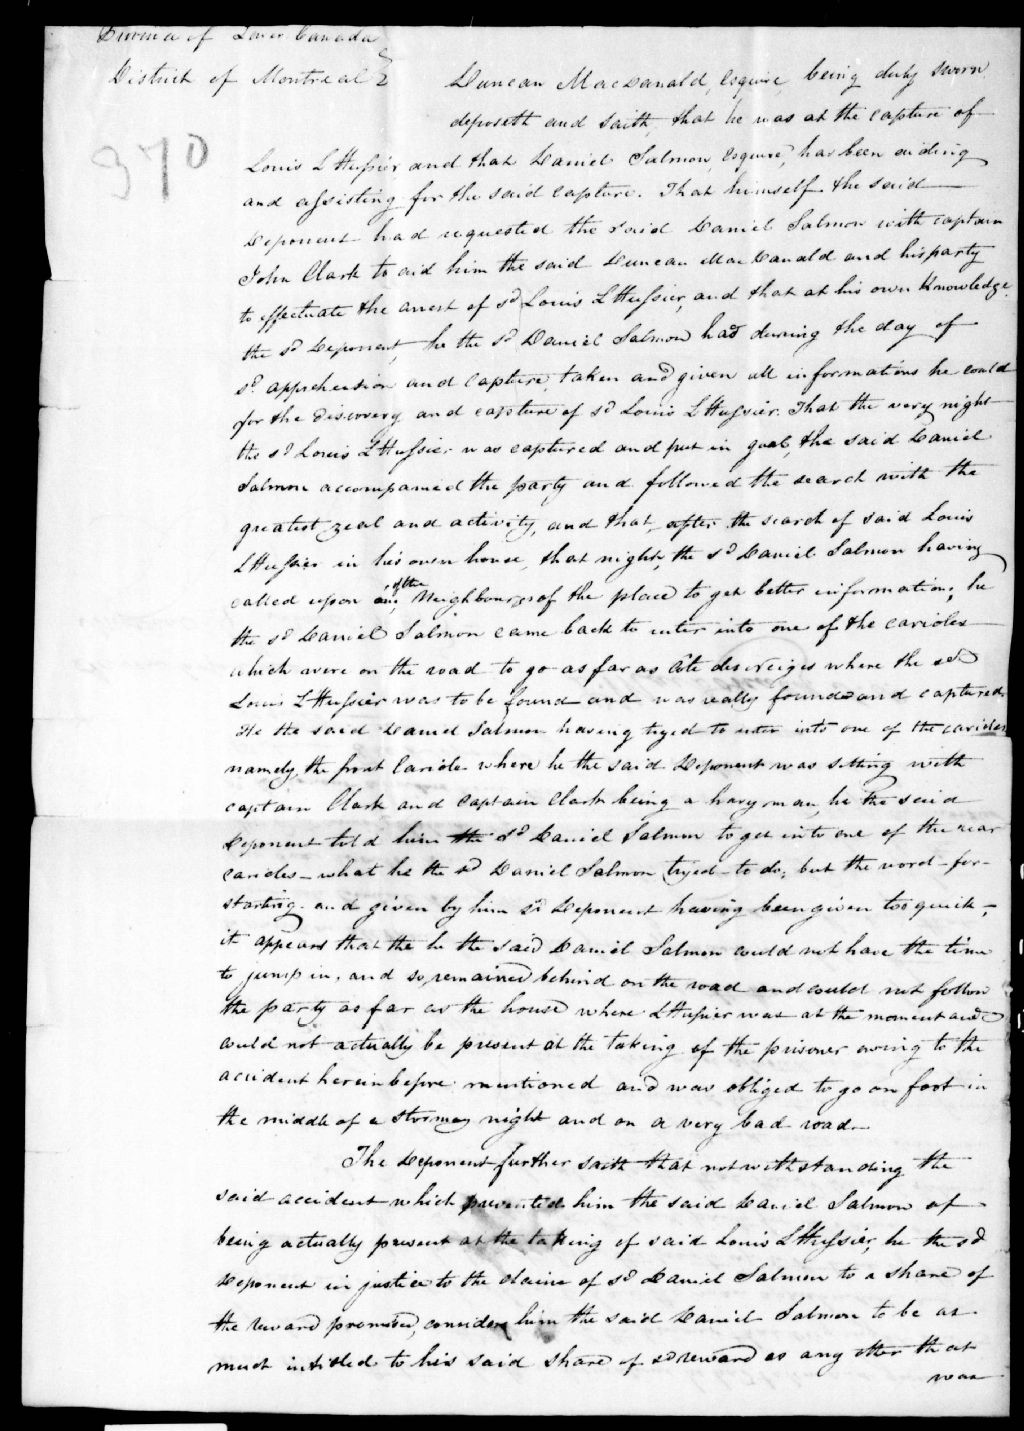 Province of Lower Canada
District of Montreal
370
Duncan MacDonald, Esquire, being duly sworn
deposeth and saith, that he was at the capture of
Louis LHussier and that Daniel Salmon, Esquire, has been aiding
and assisting for the said capture. That himself the said
Deponent had requested the said Daniel Salmon with captain
John Clark to aid him the said Duncan MacDonald and his party
to effectuate the arrest of sd Louis LHussier, and that at his own Knowledge
the sd Deponent, he the sd Daniel Salmon had during the day of
sd apprehension and capture taken and given all informations he could
for the discovery and capture of sd Louis LHussier. That the very night
the sd Louis LHussier was captured and put in goal, the said Daniel
Salmon accompanied the party and followed the search with the
greatest zeal and activity, and that, after the search of said Louis
LHussier in his own house, that night, the sd Daniel Salmon having
called upon one of the Neighbours of the place to get better information, he
the sd Daniel Salmon came back to enter into one of the carioles
which were on the road to go as far as Côte des neiges where the sd
Louis LHussier was to be found and was really found and captured.
He the said Daniel Salmon having tryed to enter into one of the carioles
namely, the front Cariole where he the said Deponent was sitting with
captain Clark and Captain Clark being a havy man, he the said
Deponent told him the sd Daniel Salmon to get into one of the rear
carioles – what he the sd Daniel Salmon tryed to do, but the word for
starting and given by him sd Deponent having been given too quick,
it appears that the he the said Daniel Salmon could not have the time
to jump in, and so, remained behind on the road and could not follow
the party as far as the house where LHussier was at the moment and
could not actually be present at the taking of the prisoner owing to the
accident herein before mentioned and was obliged to go on foot in
the middle of a stormy night and on a very bad road.
The Deponent further saith that notwithstanding the
said accident which prevented him the said Daniel Salmon of
being actually present at the taking of said Louis LHussier, he the sd
Deponent in justice to the claim of sd Daniel Salmon to a share of
the reward promised, considers him the said Daniel Salmon to be as
much intitled to his said share of sd reward as any other that
was